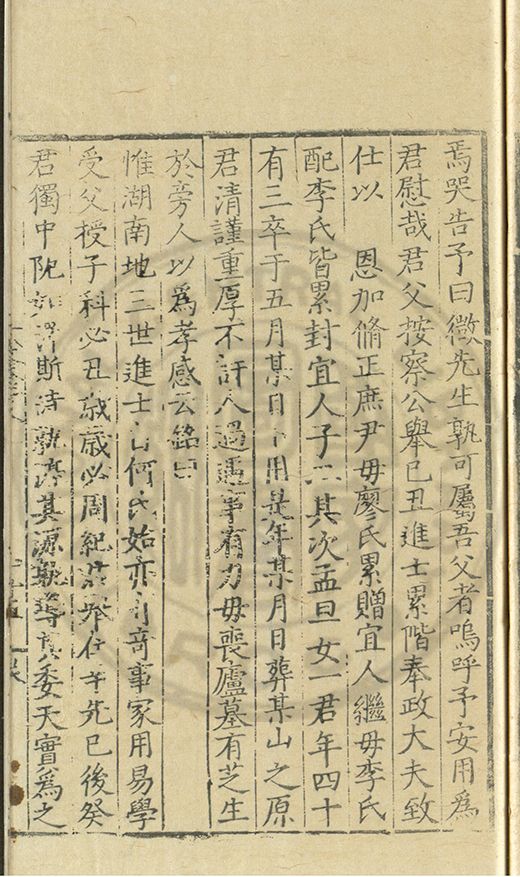 焉哭告予曰微先生孰可屬吾父者嗚呼予安用爲
君慰哉君父按察公舉巳丑進士累階奉政大夫致
仕以 恩加脩正庶尹母廖氏累贈宜人繼母李氏
配李氏皆累封宜人子二其次孟旦女一君年四十
有三卒于五月某日卜用是年某月日葬某山之原
君清謹重厚不訐人過遇事有力母喪廬墓有芝生
於旁人以爲孝感云銘曰
惟湖南地三世進士自何氏始亦有奇事家用易學
受父授子科必丑歲歲必周紀 先巳後癸
君獨中阸 斯 孰 其源孰 其委天實爲之